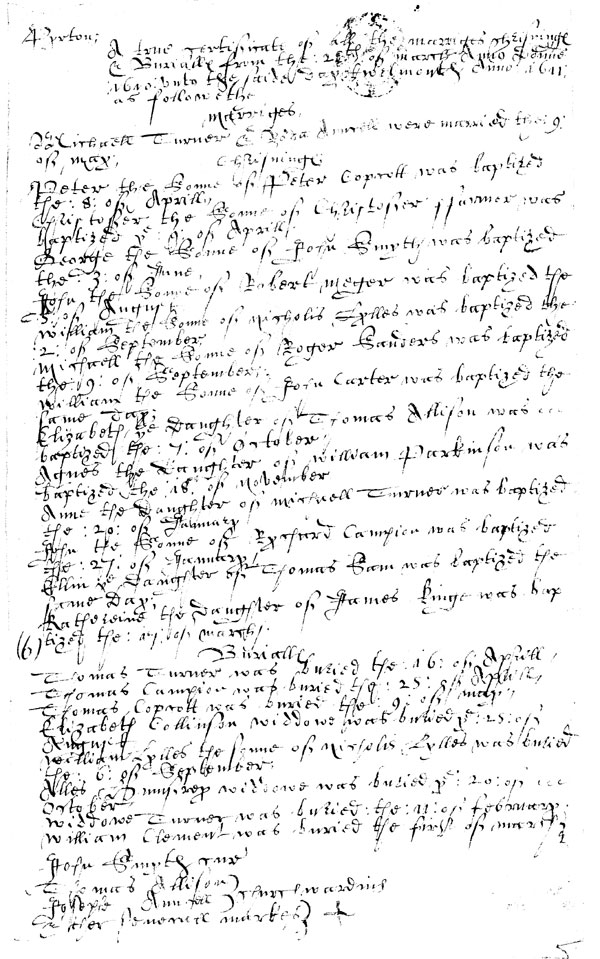 Pyrton:
A true certificate of all the marriges chrisnings
& Burialls from the: 25th of march Anno domi
1640 unto the said day & month Anno: 1641
as followethe
marriges
Michaell Turner & were married the: 9:
of may.
Chrisnings
Peter the Sonne of Peter Copcott was baptized
the: 8: of Aprill
Christoffer the Sonne of Christoffer ffarmor was
baptized ye 9: of Aprill:
George the Sonne of John Smyth was baptized
the: 3: of June,
John the Sonne of Robert Meger was baptized the
of August
William the Sonne of Nicholis Eylles was baptized the
2: of September
Michaell the Sonne of Roger Sanders was baptized
the: 9: of September:
William the Sonne of John Carter was baptized the
same Day:
Elizabeth ye Daughter of Thomas Allison was
baptized the: 7: of October
Agnes the Daughter of William Parkinson was
baptized the 18: of November
Anne the Daughter of Michaell Turner was baptized
the: 20: of January
John the Sonne of Rychard Campion was baptized
the: 27: of January
Ellin ye Daughter of Thomas Sam was baptized the
same Day:
Katherine the Daughter of James Kinge was bap
tized the: of march:
(6)
Burialls
Thomas Turner was buried the: 16: of Aprill
Thomas Campion was buried the: 25: of Aprill
Thomas Copcott was buried the: 9: of may
Elizabeth Collinson widdowe was buried ye: 25: of
August
William Eylles the Sonne of Nicholis Eylles was buried
the: 6: of September
Alles widdowe was buried ye: 20: of
October
Widdowe Turner was buried the: 11: of February:
William Clement was buried the first of march
John Smyth cur
Thomas Allison
Joseph churchwardins
ther severall markes